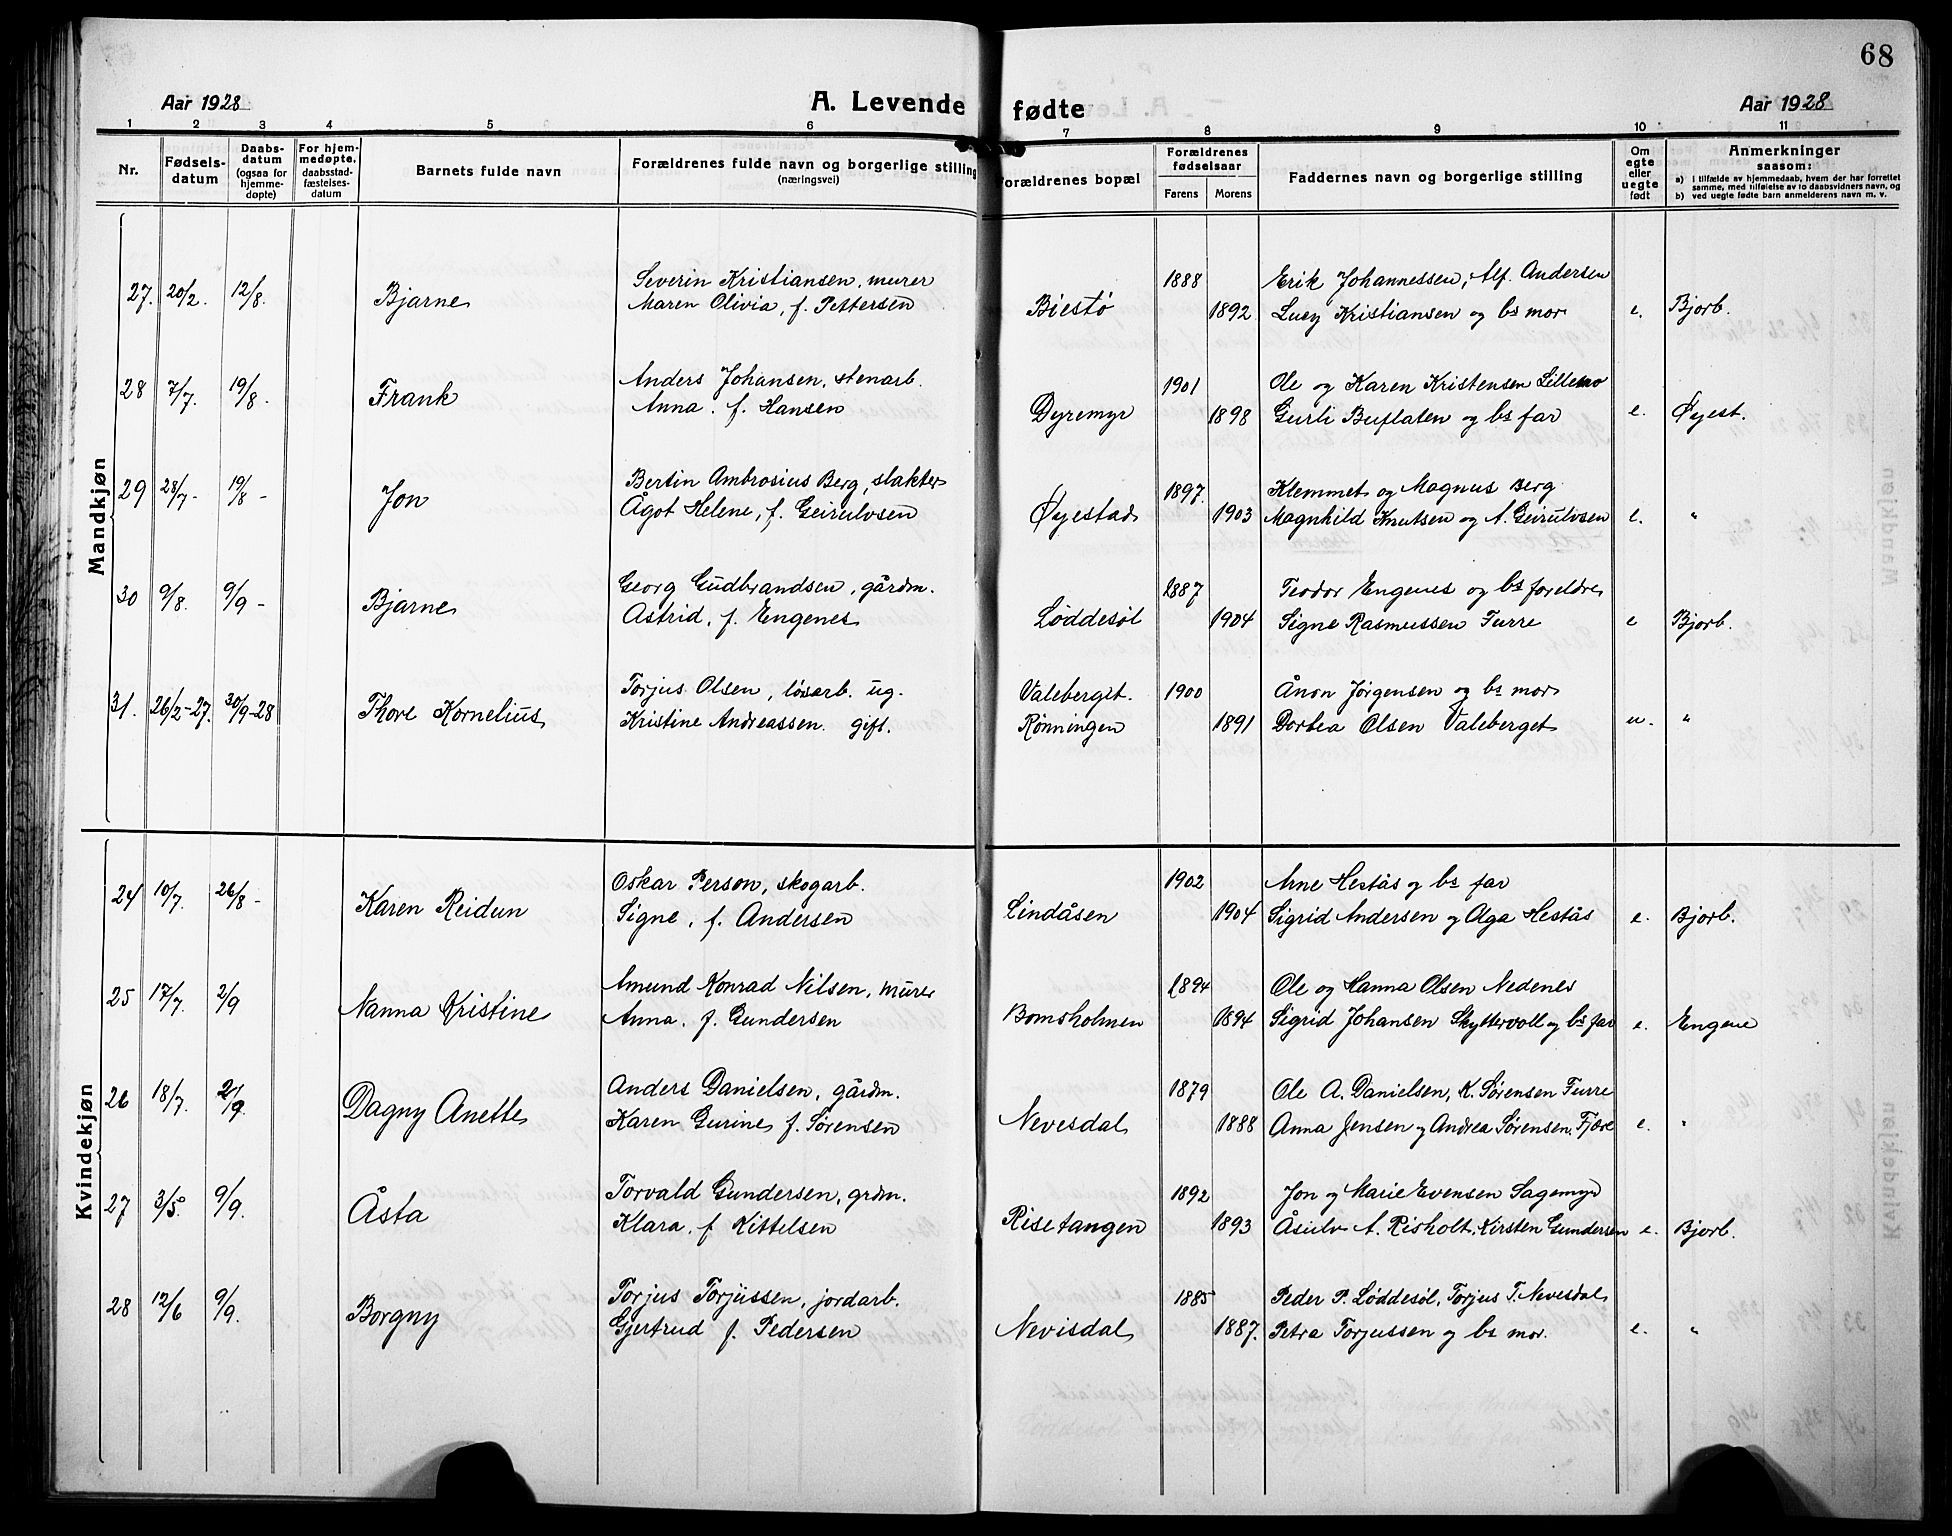 68
Aar 1928
A. Levende fødte
Aar 1928
1 2 3 4 5 6 7 8 9 10 11
Nr.
Fødselsdatum
Daabsdatum (ogsaa for hjemmedøpte)
For hjemmedøpte, daabsstadfæstelsesdatum
Barnets fulde navn
Forældrenes fulde navn og borgerlige stilling (næringsvei)
Forældrenes bopæl
Forældrenes fødselsaar
Farens Morens
Faddernes navn og borgerlige stilling
Om egte eller uegte født
Anmerkninger saasom:
a) i tilfælde av hjemmedaab, hvem der har forrettet samme, med tilføielse av to daabsvidners navn, og
b) ved uegte fødte barn anmelderens navn m. v.
Mandkjøn
Severin Kristiansen, murer 1888 Erik Johannessen, Alf. Andersen
27. 20/2. 12/8. Bjarne Maren Olivia, f. Pettersen Biestø 1892 Lucy Kristiansen og bs mor e. Bjorb.
Anders Johansen, stenarb. 1901 Ole og Karen Kristensen Lillemo
28 7/7. 19/8. Frank Anna. f. Hansen Dyremyr 1898 Gurli Buflaten og bs far e. Øyest.
Bertin Ambrosius Berg, slakter 1897. Klemmet og Magnus Berg
29 28/7- 19/8- Jon Ågot Helene, f. Geirulvsen Øyestad 1903 Magnhild Knutsen og A. Geirulvsen e. "
Georg Gudbrandsen, gårdm. 1887 Teodor Engenes og bs foreldre
30 9/8. 9/9- Bjarne Astrid, f. Engenes Løddesøl 1904 Signe Rasmussen Furre e Bjorb.
Torjus Olsen, løsarb. ug. Valeberget. 1900 Ånon Jørgensen og bs mor
31. 26/2-27. 30/9-28 Thore Kornelius Kristine Andreassen. gift. Rønningen 1891 Dortea Olsen Valeberget u. "
Kvindekjøn
Oskar Person, skogarb. 1902 Arne Hestås og bs far
24 10/7. 26/8- Karen Reidun Signe, f. Andersen Lindåsen 1904 Sigrid Andersen og Olga Hestås e. Bjorb.
Amund Konrad Nilsen, murer 1894 Ole og Hanna Olsen Nedenes
25 17/7. 2/9 Nanna Kristine Anna. f. Gundersen Bomsholmen 1894 Sigrid Johansen Skyttervoll og bs far e. Engene
Anders Danielsen, gårdm. 1879 Ole A. Danielsen, K. Sørensen Furre
26 18/7. 2/9. Dagny Anette Karen Gurine f. Sørensen Nevesdal 1888 Anna Jensen og Andrea Sørensen, Fjære e. "
Torvald Gundersen, grdm. 1892 Jon og Marie Evensen Sagemyr
27 3/5. 9/9. Åsta Klara, f Kittelsen Risetangen 1893 Åsulv A. Risholt, Kirsten Gundersen e. Bjorb.
Torjus Torjussen, jordarb. 1885 Peder P. Løddesøl, Torjus T. Nevesdal
28 12/6 9/9. Borgny Gjertrud f. Pedersen Nevisdal 1887. Petra Torjussen og bs mor. e. "